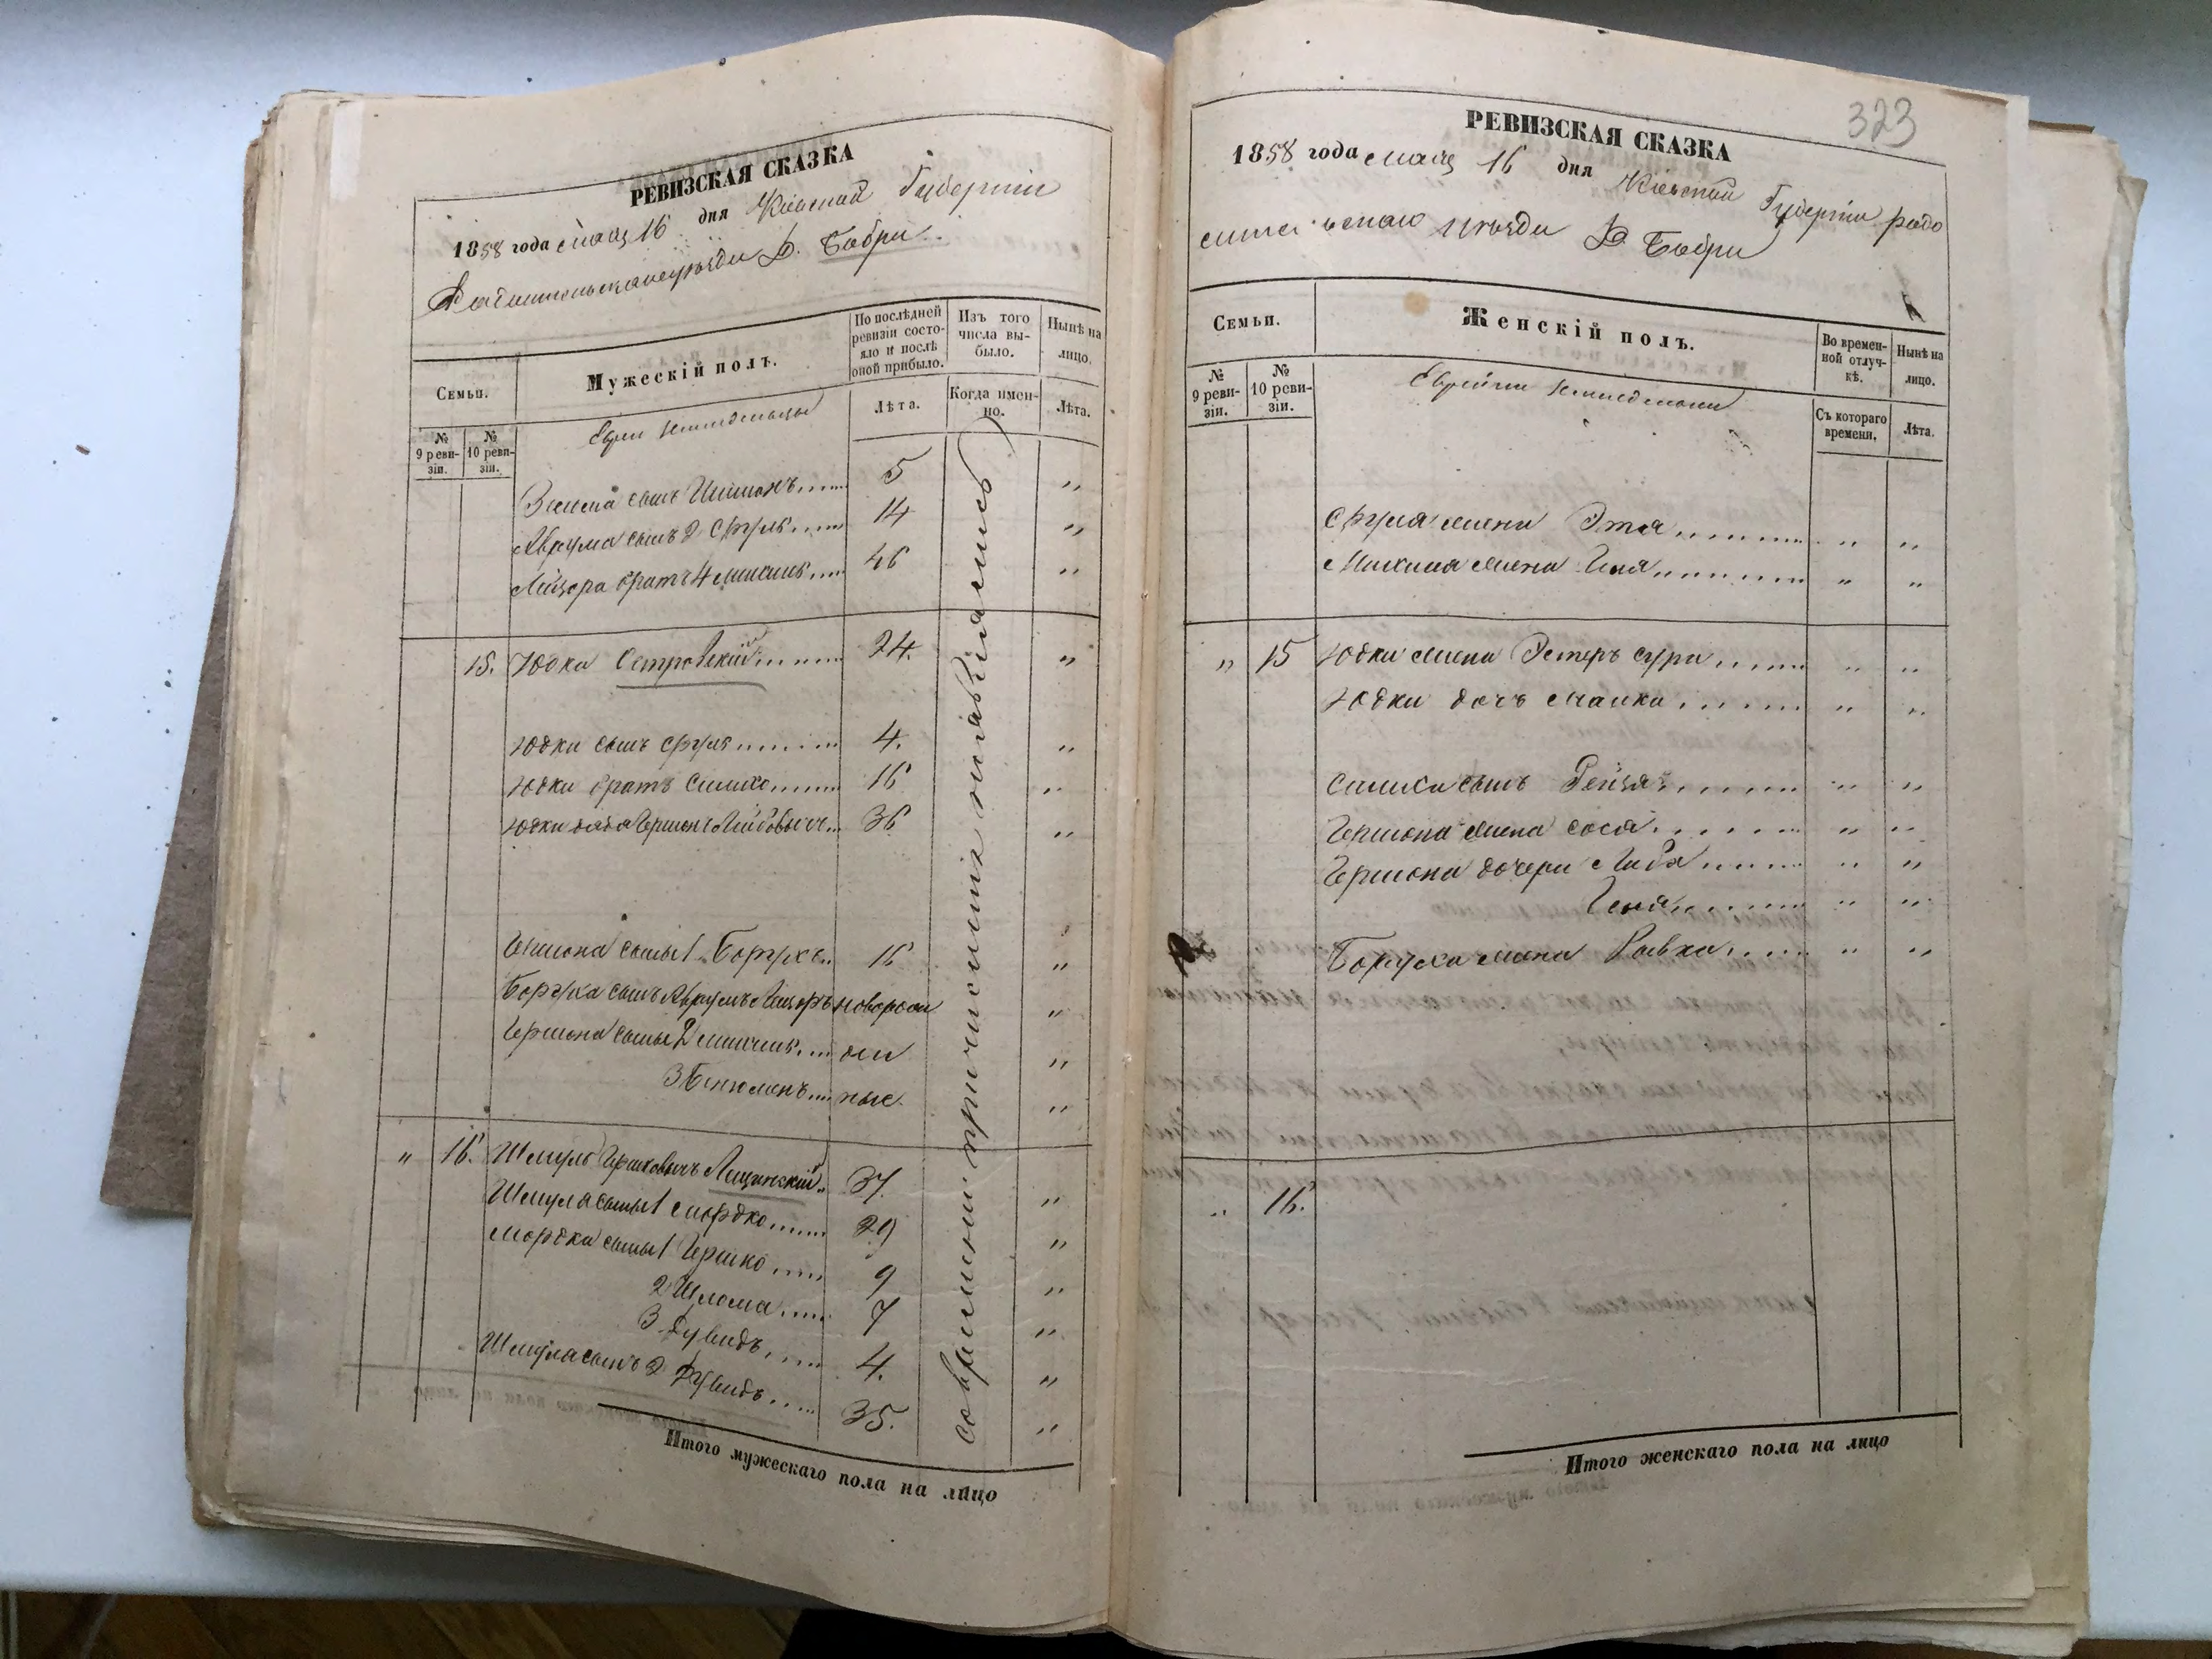 РЕВИЗСКАЯ СКАЗКА
1858 года мая 16 дня Киевской Губернии
Радомысльского уезда Д. Бобри
Семьи.
Мужескій полъ.
По послѣдней ревизіи состо-
яло и послѣ
оной прибыло.
Изъ того
числа вы-
было.
Нынѣ на
лицо.
№
9 реви-
зіи.
№
10 реви-
зіи.
Лѣта.
Когда имен-
но.
Лѣта.
Евреи земледельцы
сынъ 5 "
Аврума сынъ 2 Сруль 14 "
Лейзора братъ 4 46 "
15. Юдка Островскій 24. "
Юдки сынъ Сруль 4. "
Юдки братъ Симха 16 "
Юдки дядя Гершонъ Лейбовичъ 36 "
Гершона сыны 1 Борухъ 16 "
Боруха сынъ Аврумъ Лейзоръ новорож "
Гершона сыны 2 ден "
3 Бенюменъ ные "
" 16. Шмуль Гершковичъ Лещинскій 37. "
Шмуля сыны 1 Мордко 29 "
Мордка сыны 1 Гершко 9 "
2 Шлома 7 "
3 Дувидъ 4. "
Шмуля сынъ 2 Дувидъ 35. "
со времени причисленія не явились
Итого мужескаго пола на лицо
323
РЕВИЗСКАЯ СКАЗКА
1858 года мая 16 дня Киевской Губернии Радо
мысльского уезда Д Бобри
Семьи.
Женскій полъ.
Во времен-
ной отлуч-
кѣ.
Нынѣ на
лицо.
№
9 реви-
зіи.
№
10 реви-
зіи.
Съ котораго
времени.
Лѣта.
Еврейки земледельки
Сруля жена Этя " "
жена " "
" 15 Юдки жена Эстеръ Сура " "
Юдки дочь Маика " "
Симхи сынъ Рейзя " "
Гершона жена Сося " "
Гершона дочери Либа " "
Геня " "
Боруха жена Рывка " "
" 16.
Итого женскаго пола на лицо